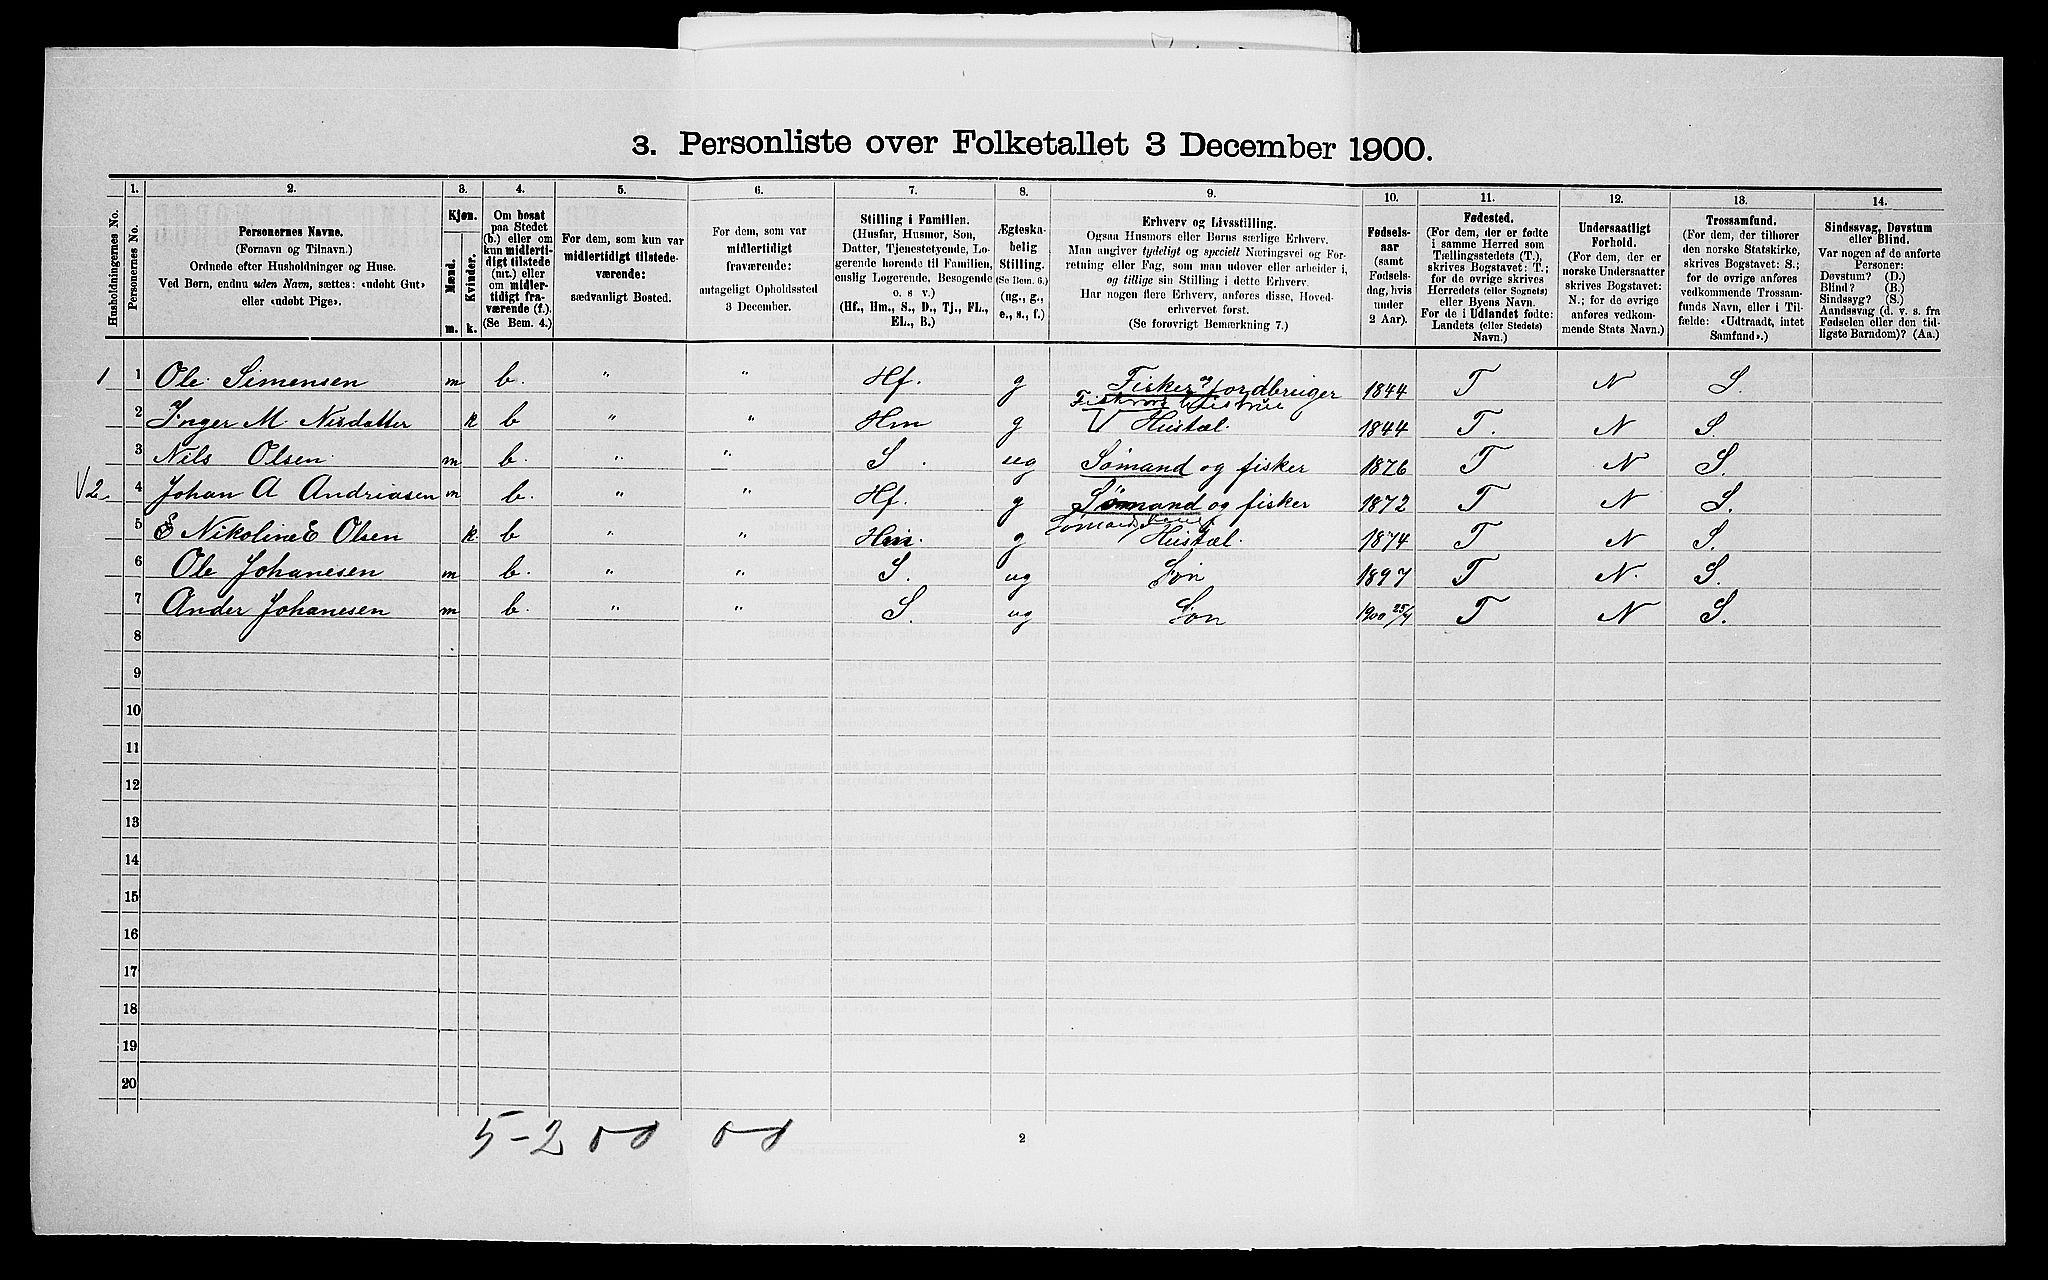 3. Personliste over Folketallet 3 December 1900.
Husholdningernes No.
1.
Personernes No.
2.
Personernes Navne.
(Fornavn og Tilnavn.)
Ordnede efter Husholdninger og Huse.
Ved Børn, endnu uden Navn, sættes: «udøbt Gut»
eller «udøbt Pige».
3.
Kjøn.
Mænd.
Kvinder.
m.
k.
4.
Om bosat
paa Stedet
(b.) eller om
kun midlerti-
digt tilstede
(mt.) eller
om midler-
tidigt fra-
værende (f.).
(Se Bem. 4.)
5.
For dem, som kun var
midlertidigt tilstede-
værende:
sædvanligt Bosted.
6.
For dem, som var
midlertidigt
fraværende:
antageligt Opholdssted
3 December.
7.
Stilling i Familien.
(Husfar, Husmor, Søn,
Datter, Tjenestetyende, Lo-
gerende hørende til Familien,
enslig Logerende, Besøgende
o. s v.)
(Hf., Hm., S., D., Tj., FL.,
EL., B.)
8.
Ægteska-
belig
Stilling.
(Se Bem. 6.)
(ug., g.,
e., s., f.)
9.
Erhverv og Livsstilling.
Ogsaa Husmors eller Børns særlige Erhverv.
Man angiver tydeligt og specielt Næringsvei og For-
retning eller Fag, som man udøver eller arbeider i,
og tillige sin Stilling i dette Erhverv.
Har nogen flere Erhverv, anføres disse, Hoved-
erhvervet først.
(Se forøvrigt Bemærkning 7.)
10.
Fødsels-
aar
(samt
Fødsels-
dag, hvis
under
2 Aar).
11.
Fødested.
(For dem, der er fødte
i samme Herred som
Tællingsstedets (T.),
skrives Bogstavet: T.;
for de øvrige skrives
Herredets (eller Sognets)
eller Byens Navn.
For de i Udlandet fødte:
Landets (eller Stedets)
Navn.)
12.
Undersaatligt
Forhold.
(For dem, der er
norske Undersaatter
skrives Bogstavet:
N.; for de øvrige
anføres vedkom-
mende Stats Navn.)
13.
Trossamfund.
(For dem, der tilhører
den norske Statskirke,
skrives Bogstavet: S.;
for de øvrige anføres
vedkommende Trossam-
funds Navn, eller i Til-
fælde: «Udtraadt, intet
Samfund».)
14.
Sindssvag, Døvstum
eller Blind.
Var nogen af de anførte
Personer:
Døvstum? (D.)
Blind? (B.)
Sindssyg? (S.)
Aandssvag (d. v. s. fra
Fødselen eller den tid-
ligste Barndom)? (Aa.)
1 1 Ole Simensen m b. " " Hf. g Fisker og Jordbruger 1844 T N S.
Fiskers Hustrue
2 Inger M. Nisdatter k b " " Hm g Hustel. 1844 T. N S.
3 Nils Olsen m b. " " S. ug Sømand og fisker 1876 T N S.
√2 4 Johan A Andriasen m b. " " Hf. g Sømand og fisker 1872 T N S.
Sømands
5 E Nikoline E Olsen k b " " Hm. g Hustel. 1874 T N S.
6 Ole Johanesen m b. " " S. ug Søn 1897 T N. S.
7 Ander Johanesen m b. " " S. ug Søn 1900 25/4 T N S.
8
9
10
11
12
13
14
15
16
17
18
19
20
5-2 0-0 0-0
2